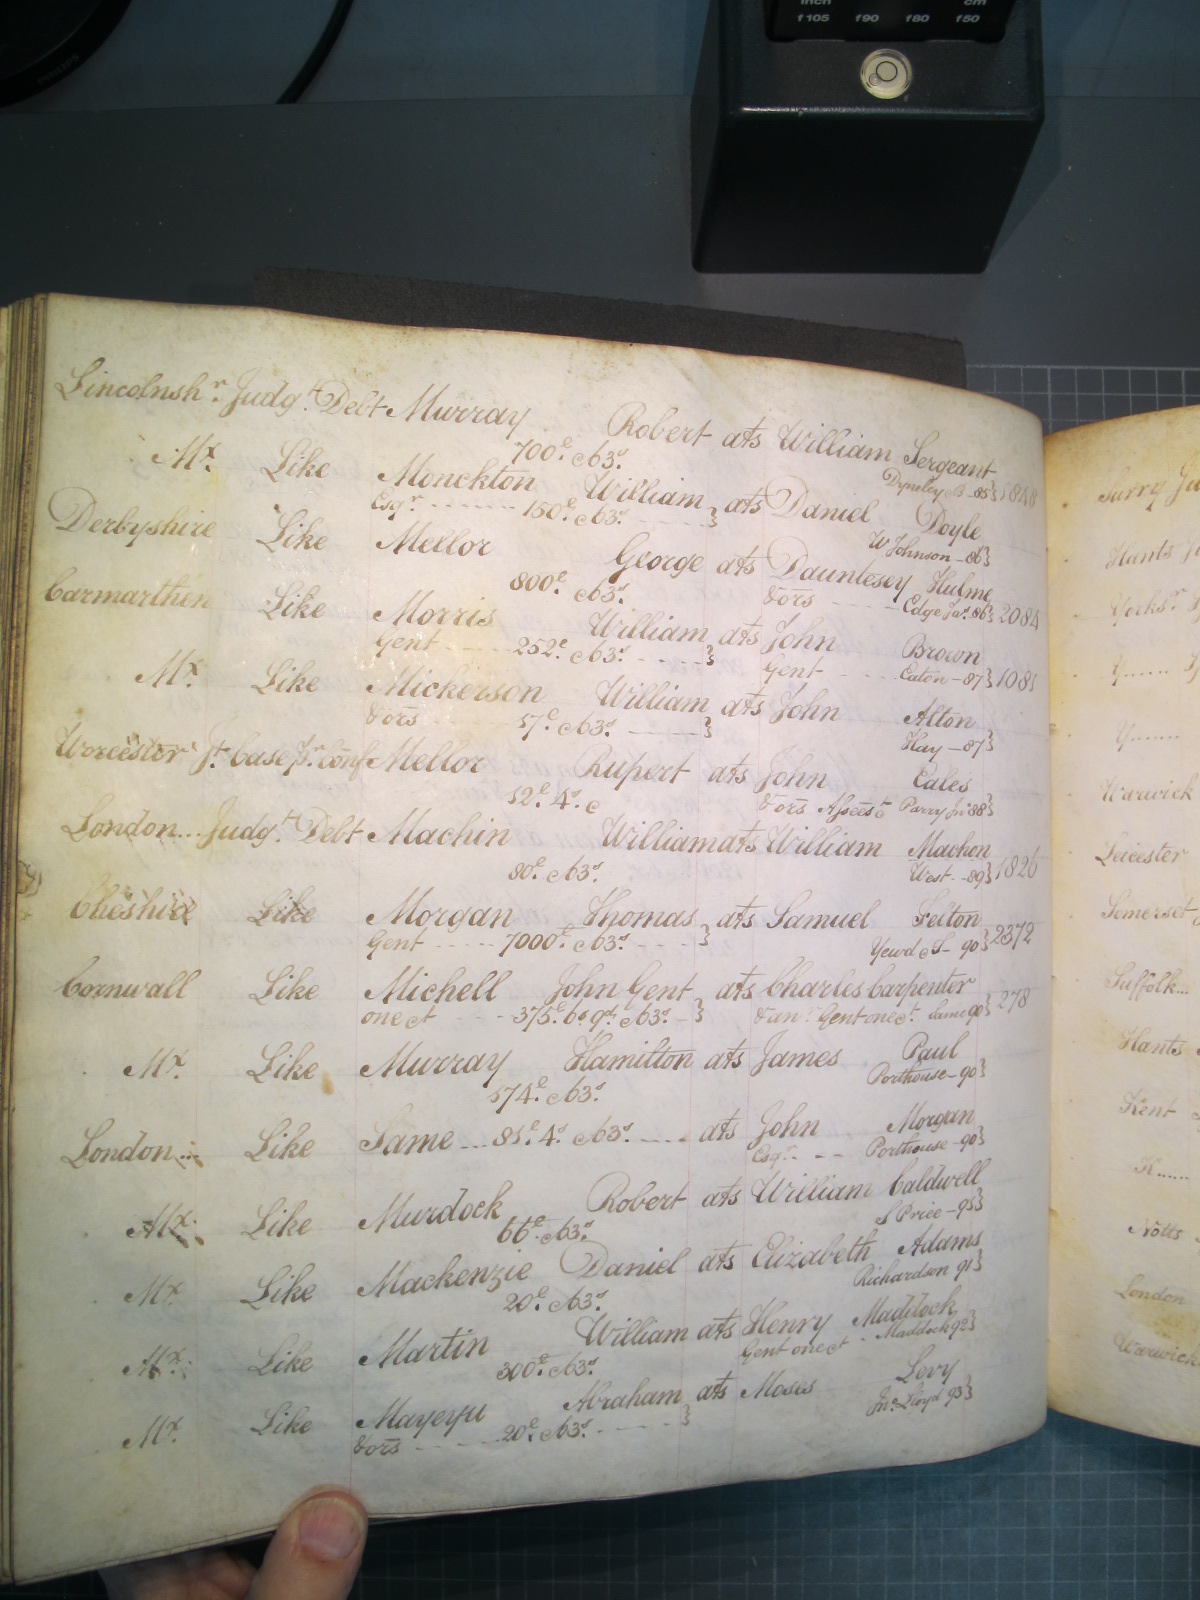 inch cm
f105 f90 f80 f50
PHILIPS
Lincolnshr. Judgt. Debt Murray Robert ats William Sergeant
700£ & 63s. Dyneley B - 85} 1848
Mx. Like Monckton William } ats Daniel Doyle
Esqr. ------- 150£ & 63s. ---- W Johnson - 86}
Derbyshire Like Mellor George ats Dauntesey Hulme
800£ & 63s. & ors ---- Edge Jas. 86} 2084
Carmarthen Like Morris William } ats John Brown
Gent ----- 252£ & 63s. ---- Gent ---- Eaton - 87} 1081
Mx. Like Mickerson William } ats John Alton
& ors 57£ & 63s. ---- Hay - 87}
Worcester Jt. Case pr. Conf Mellor Rupert ats John Eales
52£ 4s. & & ors Assees & Parry Jn 88}
London... Judgt. Debt Machin William ats William Machon
80£ & 63s. West - 89} 1826
Cheshire Like Morgan Thomas } ats Samuel Felton
Gent ----- 7000£ & 63s. ---- Yewd & S - 90} 2372
Cornwall Like Michell John Gent } ats Charles Carpenter
one &c ----- 375£ 6s 9d. & 63s. - & anr. Gent one &c. Same 90} 278
Mx. Like Murray Hamilton ats James Paul
574£ & 63s. Porthouse - 90}
London... Like Same ... 85£ 4s. & 63s. ---- ats John Morgan
Esqr. - - Porthouse - 90}
Mx. Like Murdock Robert ats William Caldwell
66£ & 63s. S Price - 95}
Mx. Like Mackenzie Daniel ats Elizabeth Adams
20£ & 63s. Richardson 91}
Mx. Like Martin William ats Henry Maddock
300£ & 63s. Gent one &c Maddock 92}
Mx. Like Mayeyu Abraham } ats Moses Levy
& ors ---- 20£ & 63s. ---- Jno. Lloyd 93}
Surry
Hants
Yorksr.
Y......
Y......
Warwick
Leicester
Somerset
Suffolk...
Hants
Kent
K......
Notts
London
Warwick